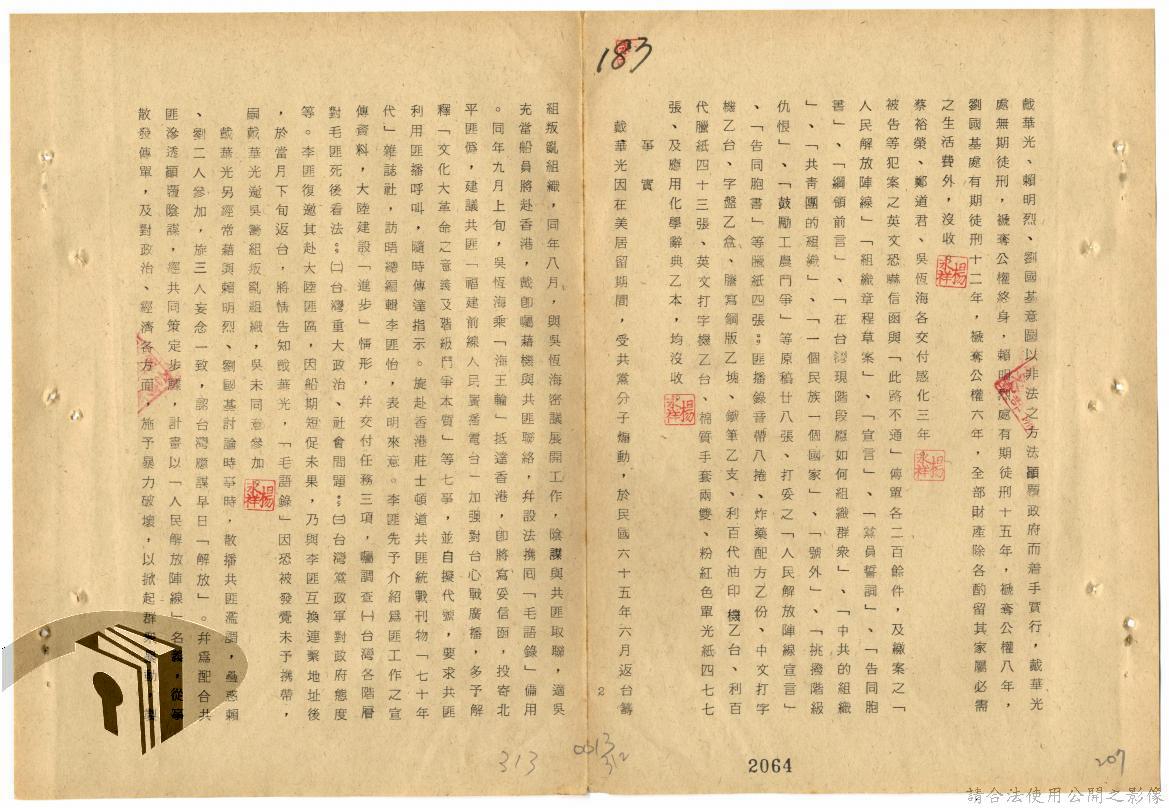 183
戴華光、賴明烈、劉國基意圖以非法之方法顛覆政府而着手實行，戴華光
處無期徒刑，褫奪公權終身，賴明烈處有期徒刑十五年，褫奪公權八年，
劉國基處有期徒刑十二年，褫奪公權六年，全部財產除各酌留其家屬必需
之生活費外，沒收。
蔡裕榮、鄭道君、吳恆海各交付感化三年。
被告等犯案之英文恐嚇信函與「此路不通」傳單各二百餘件，及繳案之「
人民解放陣線」「組織章程草案」、「宣言」、「黨員誓詞」、「告同胞
書」、「綱領前言」、「在台灣現階段應如何組織群衆」、「中共的組織
」、「共靑團的組織」、「一個民族一個國家」、「號外」、「挑撥階級
仇恨」、「鼓勵工農鬥爭」等原稿廿八張、打妥之「人民解放陣線宣言」
、「告同胞書」等臘紙四張；匪播錄音帶八捲、炸藥配方乙份、中文打字
機乙台、字盤乙盒、謄寫鋼版乙塊、鐵筆乙支、利百代油印機乙台、利百
代臘紙四十三張、英文打字機乙台、棉質手套兩雙、粉紅色單光紙四七七
張、及應用化學辭典乙本，均沒收。
事實
戴華光因在美居留期間，受共黨分子煽動，於民國六十五年六月返台籌
2
組叛亂組織，同年八月，與吳恆海密議展開工作，陰謀與共匪取聯，適吳
充當船員將赴香港，戴卽囑藉機與共匪聯絡，幷設法携囘「毛語錄」備用
。同年九月上旬，吳恆海乘「海王輪」抵達香港，卽將寫妥信函，投寄北
平匪僞，建議共匪「福建前線人民廣播電台」加强對台心戰廣播，多予解
釋「文化大革命之意義及階級鬥爭本質」等七事，並自擬代號，要求共匪
利用匪播呼叫，隨時傳達指示。旋赴香港莊士頓道共匪統戰刊物「七十年
代」雜誌社，訪晤總編輯李匪怡，表明來意。李匪先予介紹爲匪工作之宣
傳資料，大陸建設「進步」情形，幷交付任務三項，囑調查㈠台灣各階層
對毛匪死後看法；㈡台灣重大政治、社會問題；㈢台灣黨政軍對政府態度
等。李匪復邀其赴大陸匪區，因船期短促未果，乃與李匪互換連繫地址後
，於當月下旬返台，將情告知戴華光，「毛語錄」因恐被發覺未予携帶，
嗣戴華光邀吳籌組叛亂組織，吳未同意參加。
戴華光另經常藉與賴明烈、劉國基討論時事時，散播共匪濫調，蠱惑賴
、劉二人參加，旋三人妄念一致，認台灣應謀早日「解放」。幷爲配合共
匪滲透顛覆陰謀，經共同策定步驟，計畫以「人民解放陣線」名義，從事
散發傳單，及對政治、經濟各方面，施予暴力破壞，以掀起群衆暴動，製
313
0013
312
2064
207
請合法使用公開之影像